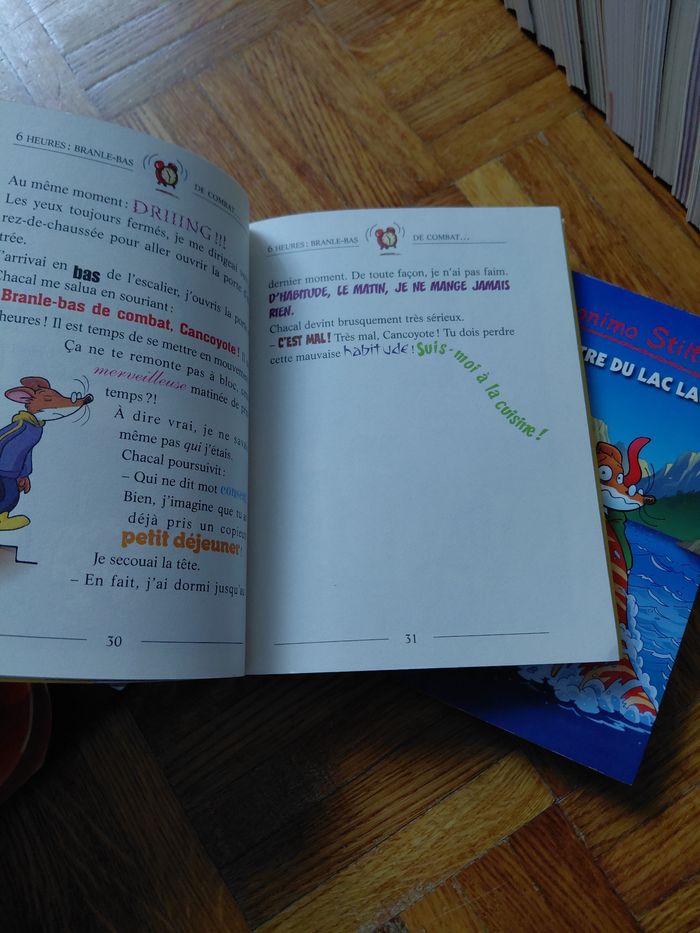 6 HEURES : BRANLE-BAS DE COMBAT...
Au même moment : DRIIING !!!
Les yeux toujours fermés, je me dirigeai
rez-de-chaussée pour aller ouvrir la porte
trée.
J'arrivai en bas de l'escalier, j'ouvris la porte
Chacal me salua en souriant :
Branle-bas de combat, Cancoyote !
heures ! Il est temps de se mettre en mouvement
Ça ne te remonte pas à bloc,
merveilleuse matinée de
temps ?!
À dire vrai, je ne
même pas qui j'étais.
Chacal poursuivit :
– Qui ne dit mot
Bien, j'imagine que tu
déjà pris un
petit déjeuner
Je secouai la tête.
– En fait, j'ai dormi jusqu'au
30
6 HEURES : BRANLE-BAS DE COMBAT...
dernier moment. De toute façon, je n'ai pas faim.
D'HABITUDE, LE MATIN, JE NE MANGE JAMAIS
RIEN.
Chacal devint brusquement très sérieux.
– C'EST MAL ! Très mal, Cancoyote ! Tu dois perdre
cette mauvaise habitude ! Suis-moi à la cuisine !
31
DU LAC